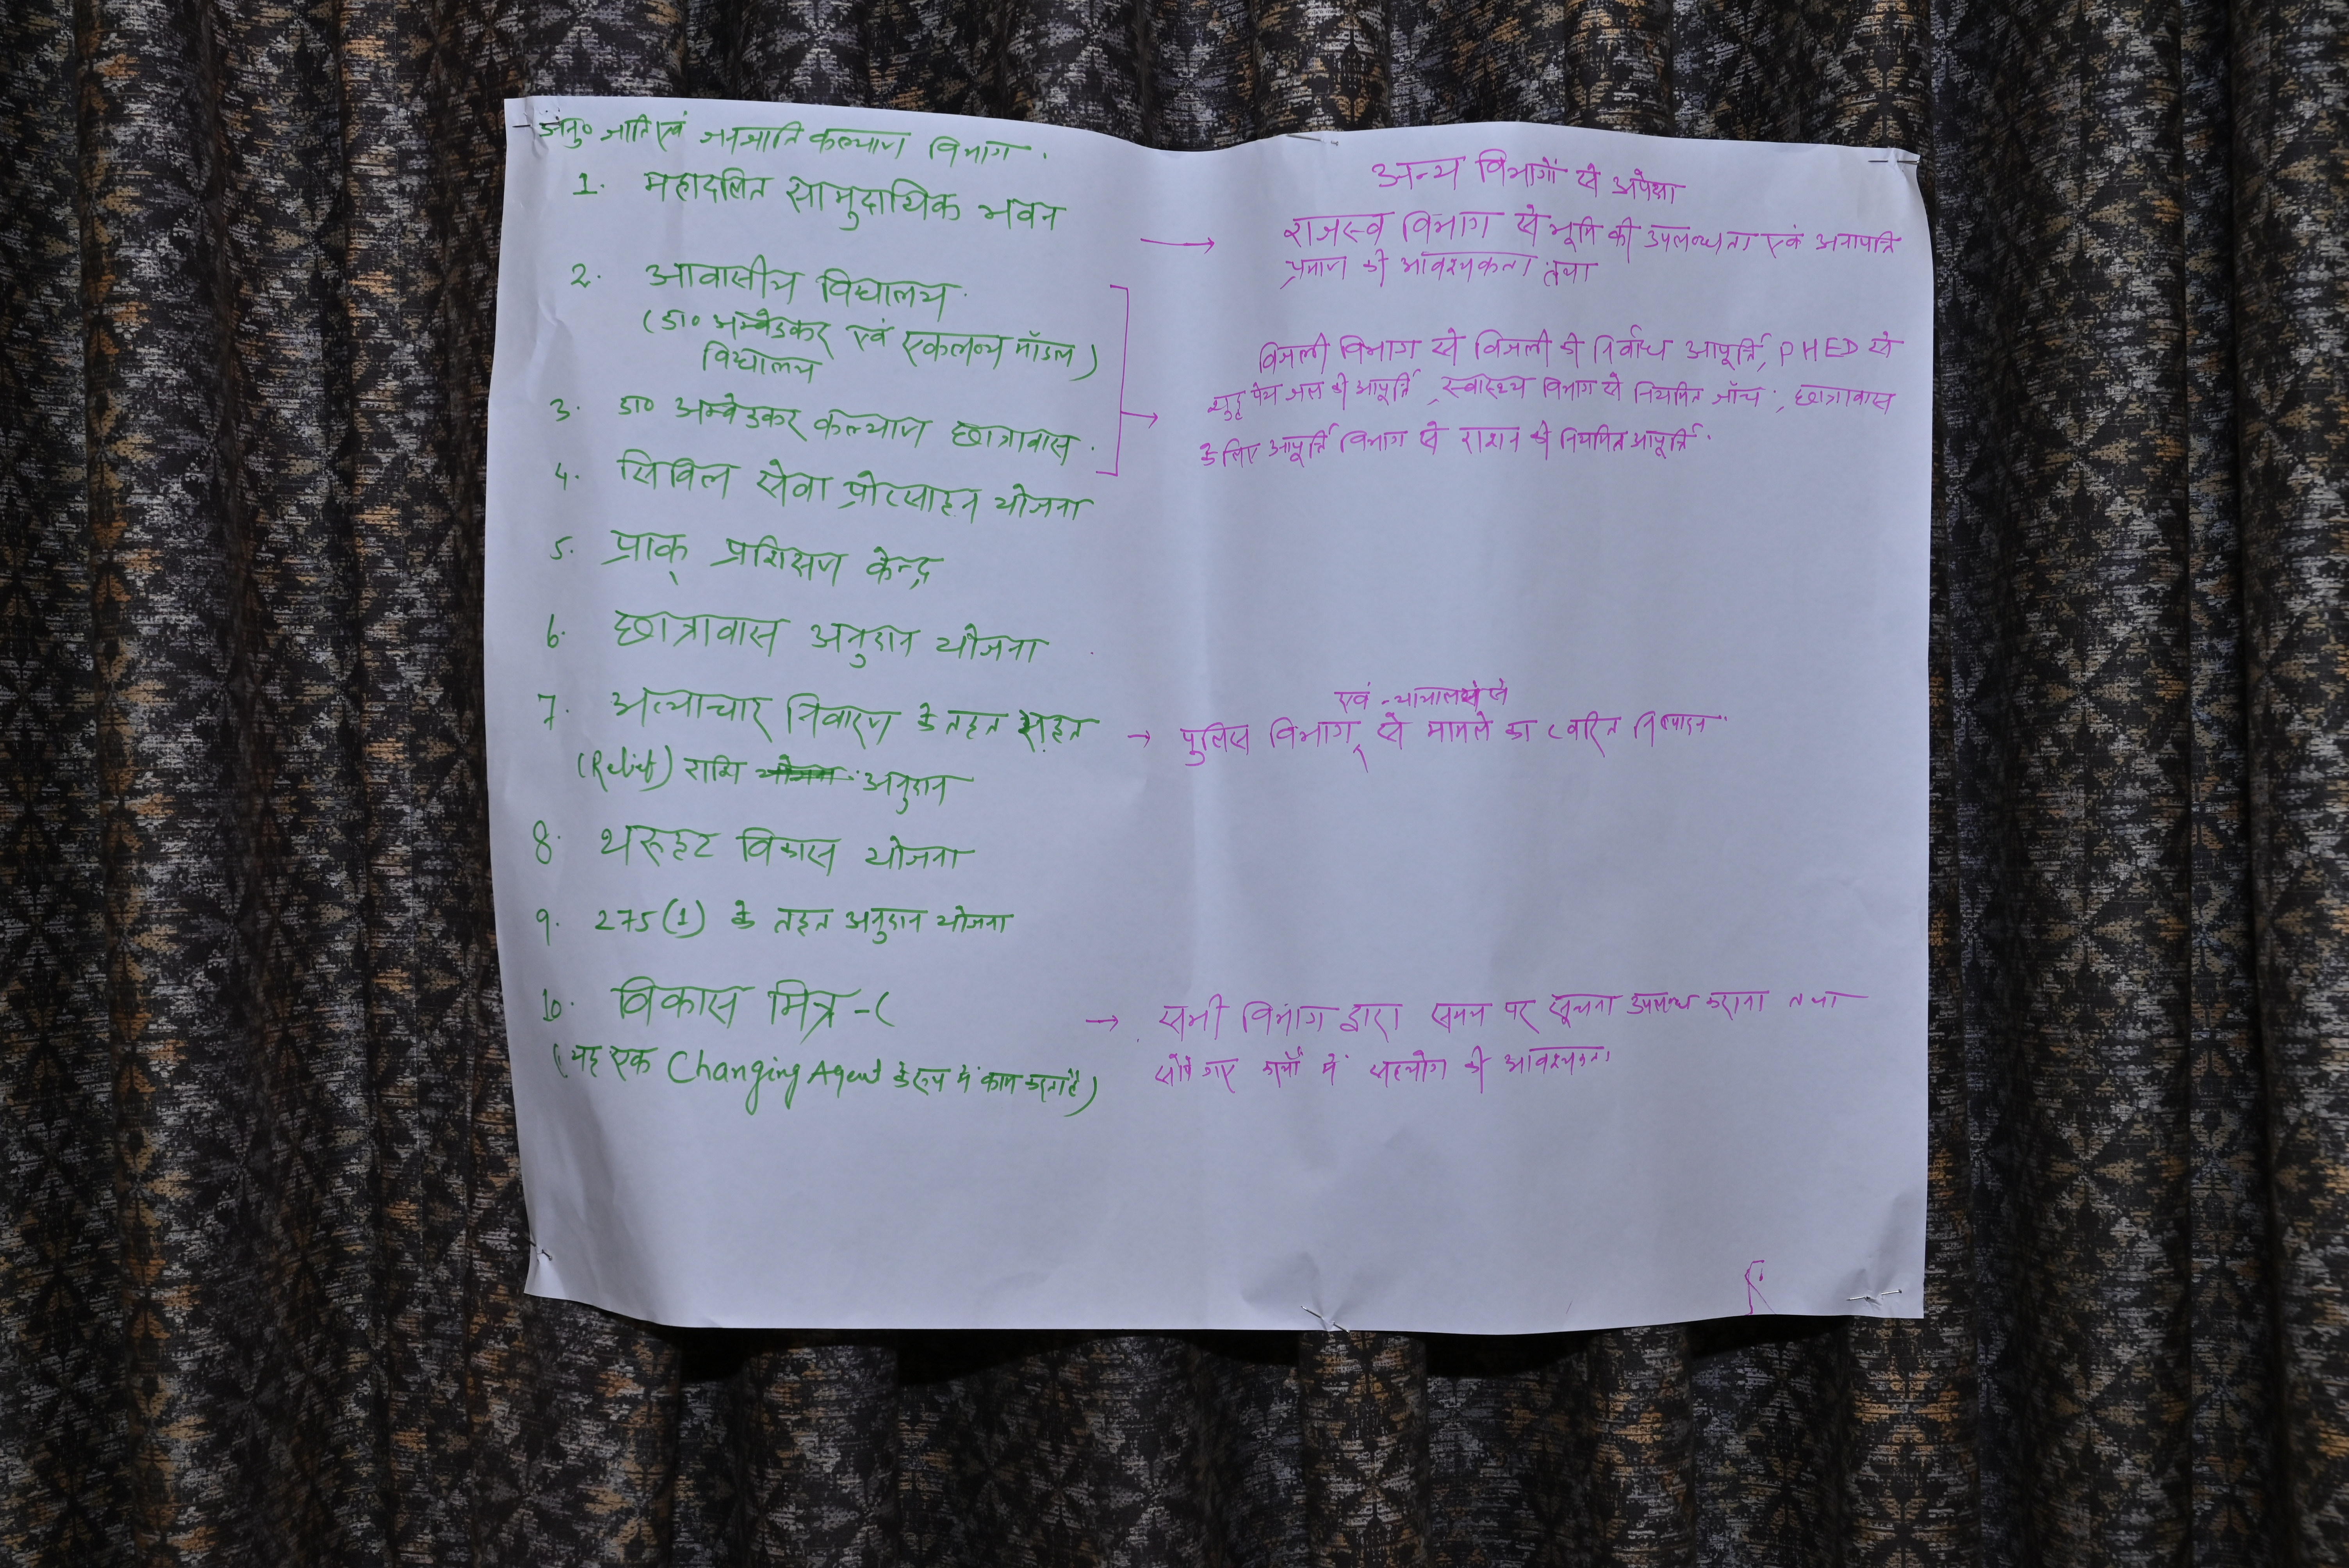 अनु० जाति एवं जनजाति कल्याण विभाग.
1. महादलित सामुदायिक भवन
2. आवासीय विद्यालय
(डा० अम्बेडकर एवं एकलव्य मॉडल)
विद्यालय
3. डा० अम्बेडकर कल्याण छात्रावास.
4. सिविल सेवा प्रोत्साहन योजना
5. प्राक् प्रशिक्षण केन्द्र
6. छात्रावास अनुदान योजना
7. अत्याचार निवारण के तहत राहत
(Relief) राशि योजना अनुदान
8. थरूहट विकास योजना
9. 275(1) के तहत अनुदान योजना
10. विकास मित्र -(
(यह एक Changing Agent के रूप में काम करता है)
अन्य विभागों से अपेक्षा
→ राजस्व विभाग से भूमि की उपलब्धता एवं अनापत्ति
प्रमाण की आवश्यकता तथा
बिजली विभाग से बिजली की निर्बाध आपूर्ति, PHED से
शुद्ध पेय जल की आपूर्ति, स्वास्थ्य विभाग से नियमित जाँच, छात्रावास
के लिए आपूर्ति विभाग से राशन की नियमित आपूर्ति.
एवं न्यायालयों से
→ पुलिस विभाग से मामले का त्वरित निष्पादन
→ सभी विभाग द्वारा समय पर सूचना उपलब्ध कराना तथा
सौंपे गए कार्यों में सहयोग की आवश्यकता